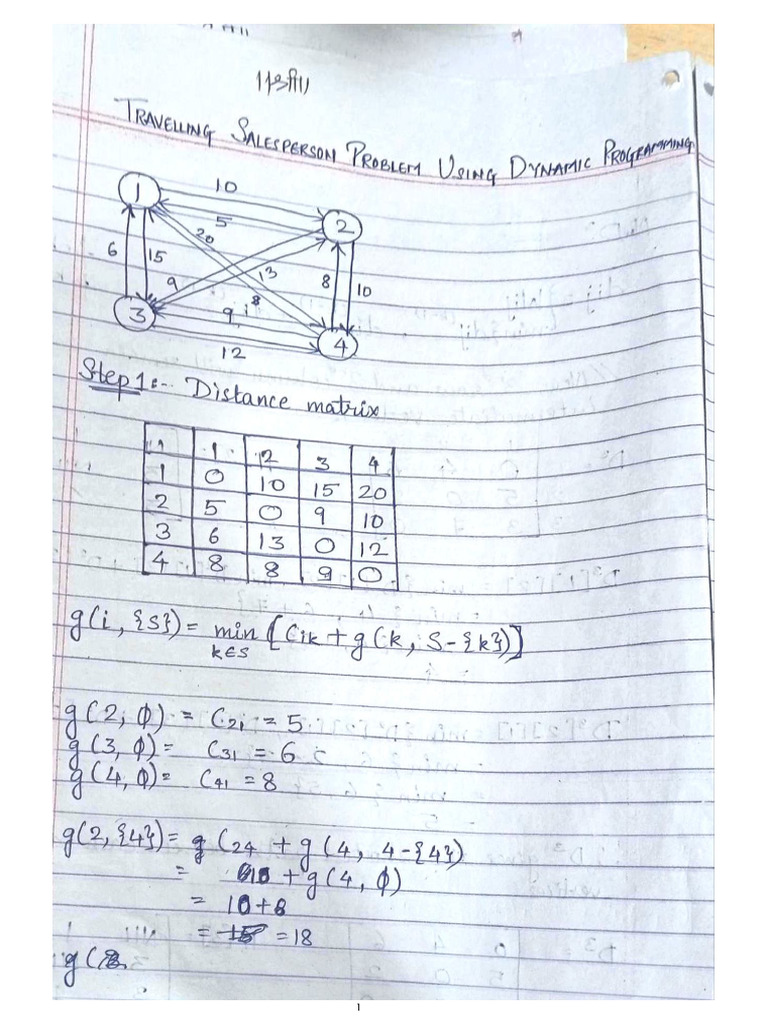 TRAVELLING SALESPERSON PROBLEM USING DYNAMIC PROGRAMMING
1
10
5
2
20
6
15
9
13
8
10
8
3
9
4
12
Step 1:- Distance matrix
1 2 3 4
1 0 10 15 20
2 5 0 9 10
3 6 13 0 12
4 8 8 9 0
g(i, {S}) = min [Cik + g(k, S-{k})]
k∈S
g(2, φ) = C21 = 5
g(3, φ) = C31 = 6
g(4, φ) = C41 = 8
g(2, {4}) = C24 + g(4, 4-{4})
= 10 + g(4, φ)
= 10+8
= 15 = 18
g(
1